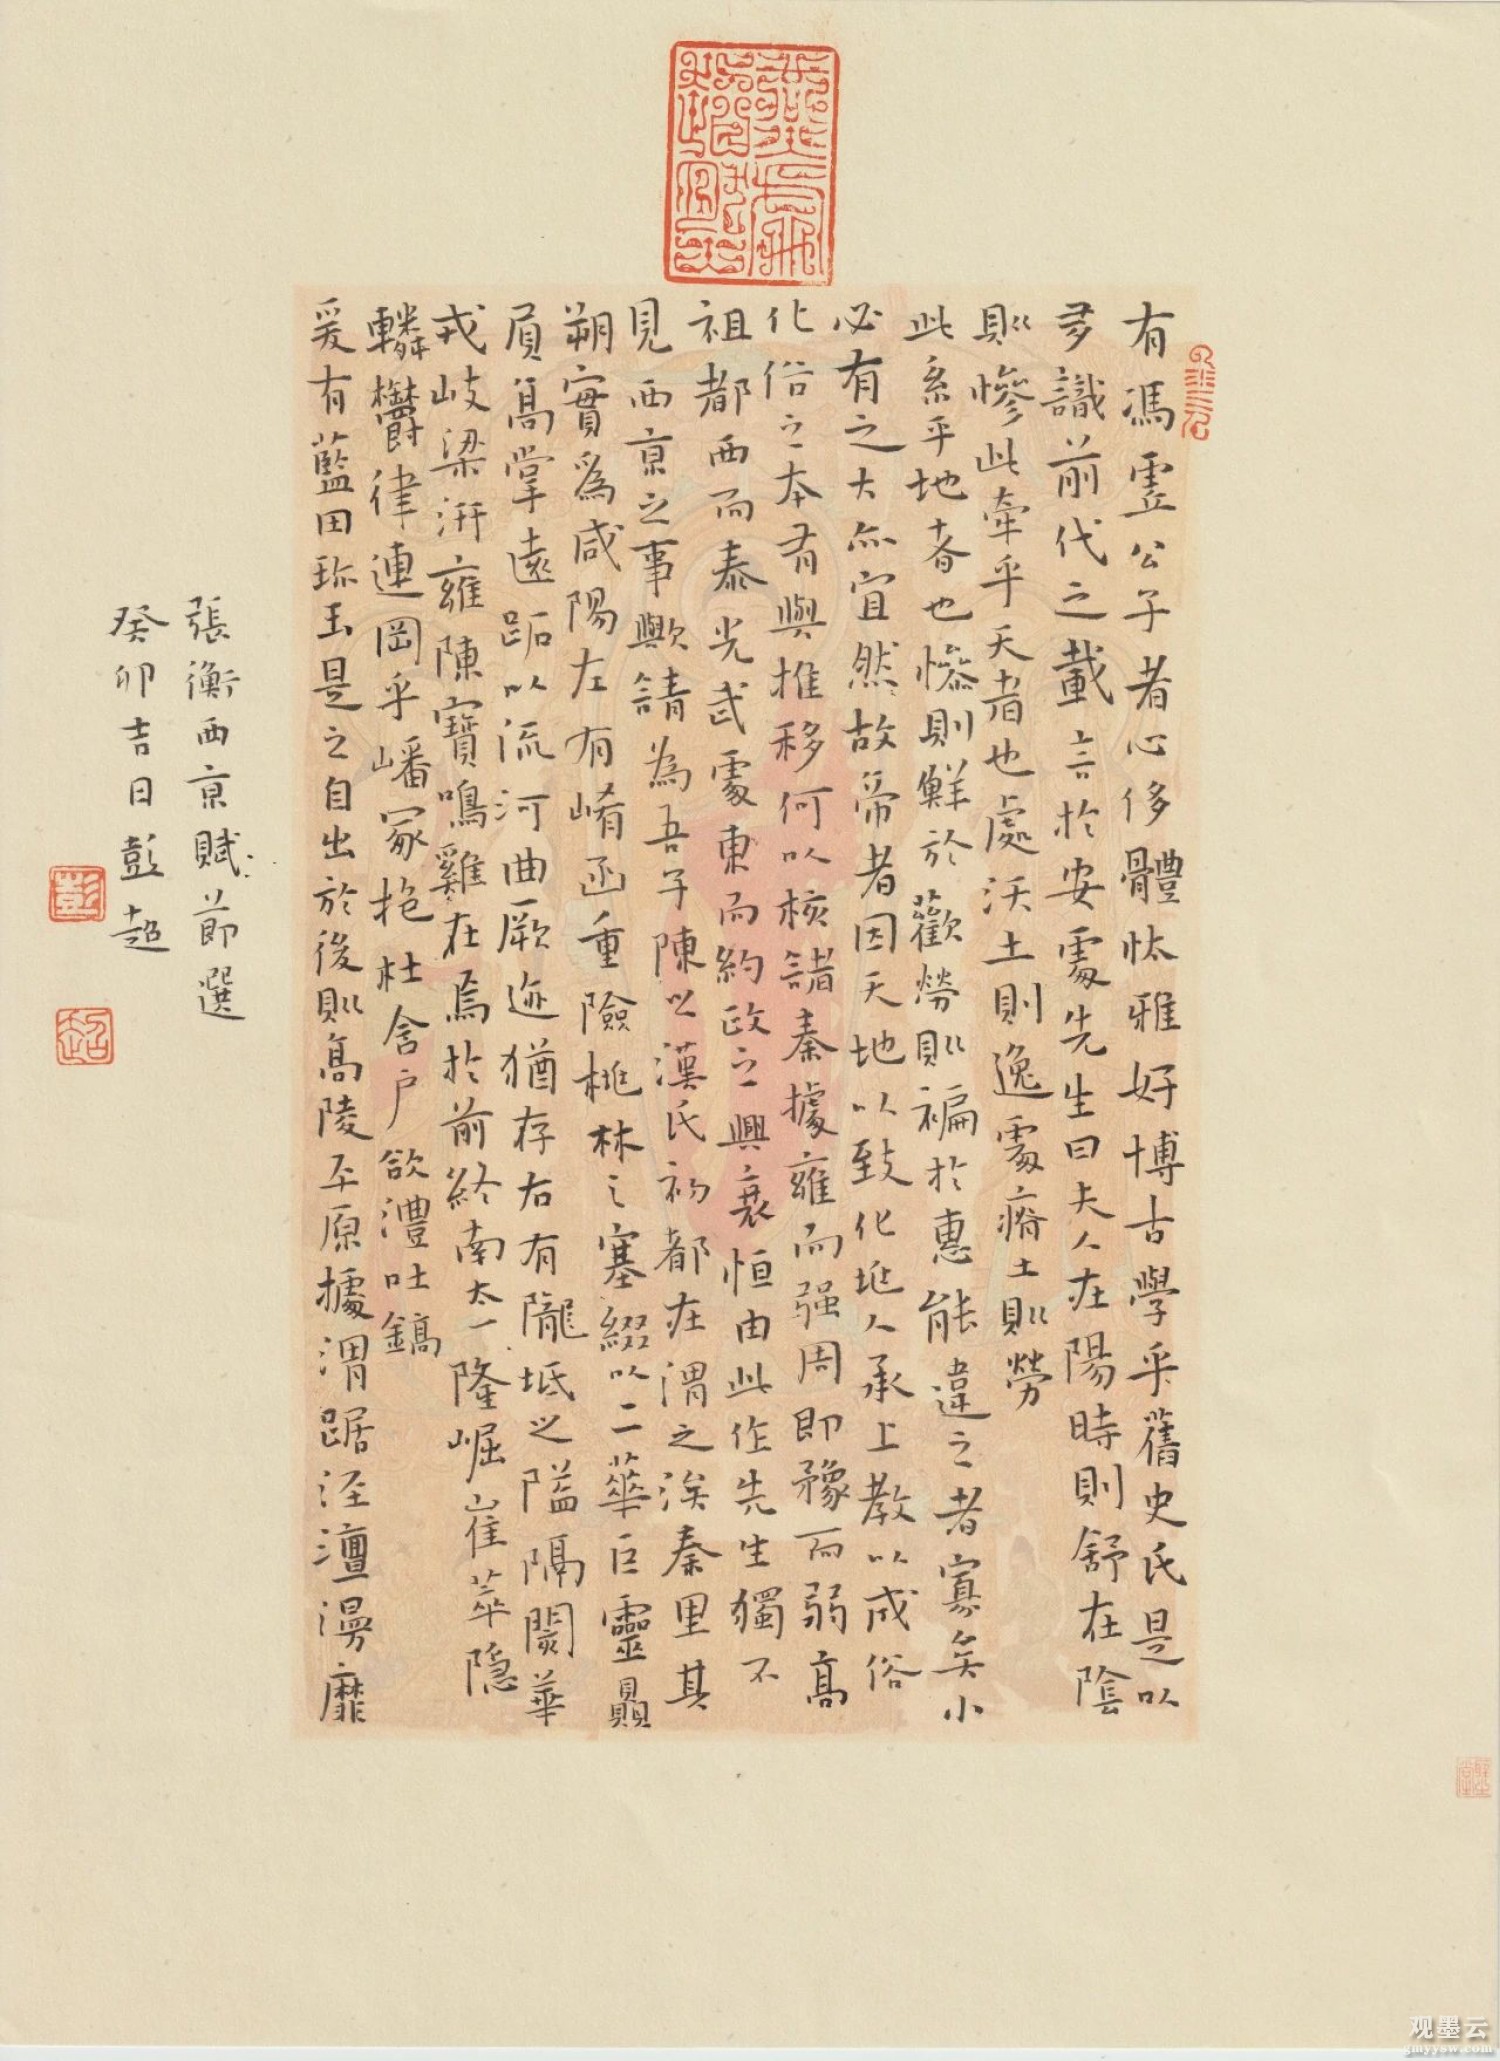 有馮虛公子者心侈體忲雅好博古學乎舊史氏是以
多識前代之載言於安處先生曰夫人在陽時則舒在陰
則慘此牽乎天者也處沃土則逸處瘠土則勞
此系乎地者也慘則鮮於歡勞則褊於惠能違之者寡矣小
必有之大亦宜然故帝者因天地以致化兆人承上教以成俗
化俗之本有與推移何以核諸秦據雍而强周即豫而弱高
祖都西而泰光武處東而約政之興衰恒由此作先生獨不
見西京之事歟請為吾子陳之漢氏初都在渭之涘秦里其
朔實為咸陽左有崤函重險桃林之塞綴以二華巨靈贔
屓高掌遠跖以流河曲厥迹猶存右有隴坻之隘隔閡華
戎岐梁汧雍陳寶鳴雞在焉於前終南太一隆崛崔萃隱
轔鬱律連岡乎嶓冢抱杜含户欱澧吐鎬
爰有藍田珎玉是之自出於後則高陵平原據渭踞涇澶漫靡
張衡西京賦節選
癸卯吉日彭超
彭
超
观墨云
gmyysw.com